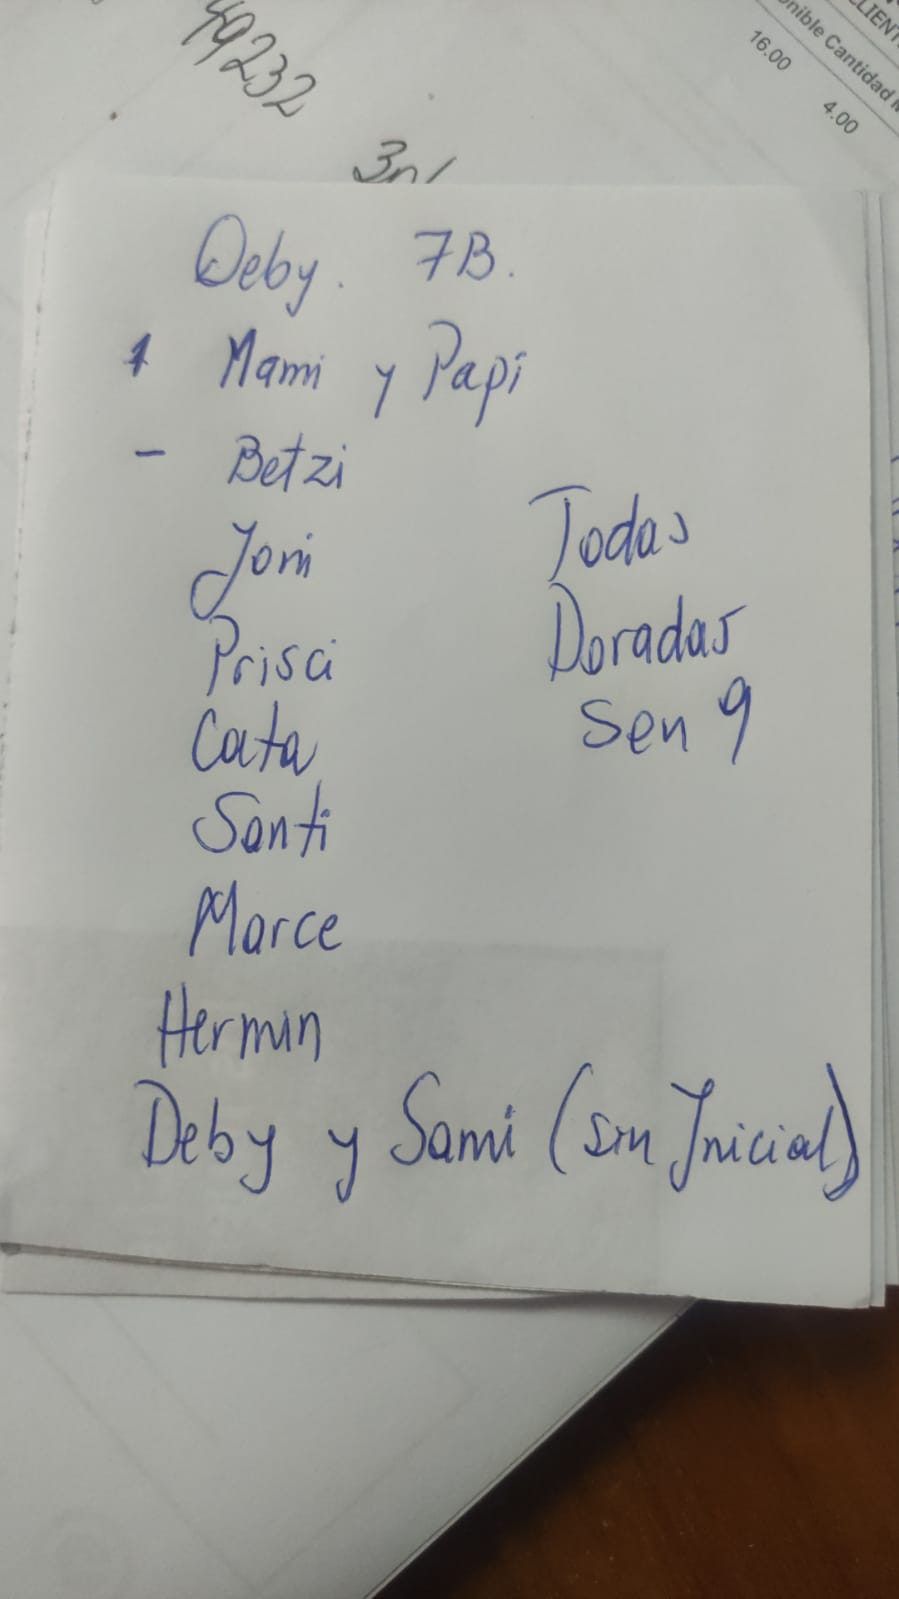 49232
CLIENT
nible Cantidad
16.00
4.00
Deby. 7B.
1 Mami y Papi
- Betzi
Joni
Prisci
Cata
Santi
Marce
Hermin
Deby y Sami (sin Inicial)
Todas
Doradas
Sen 9